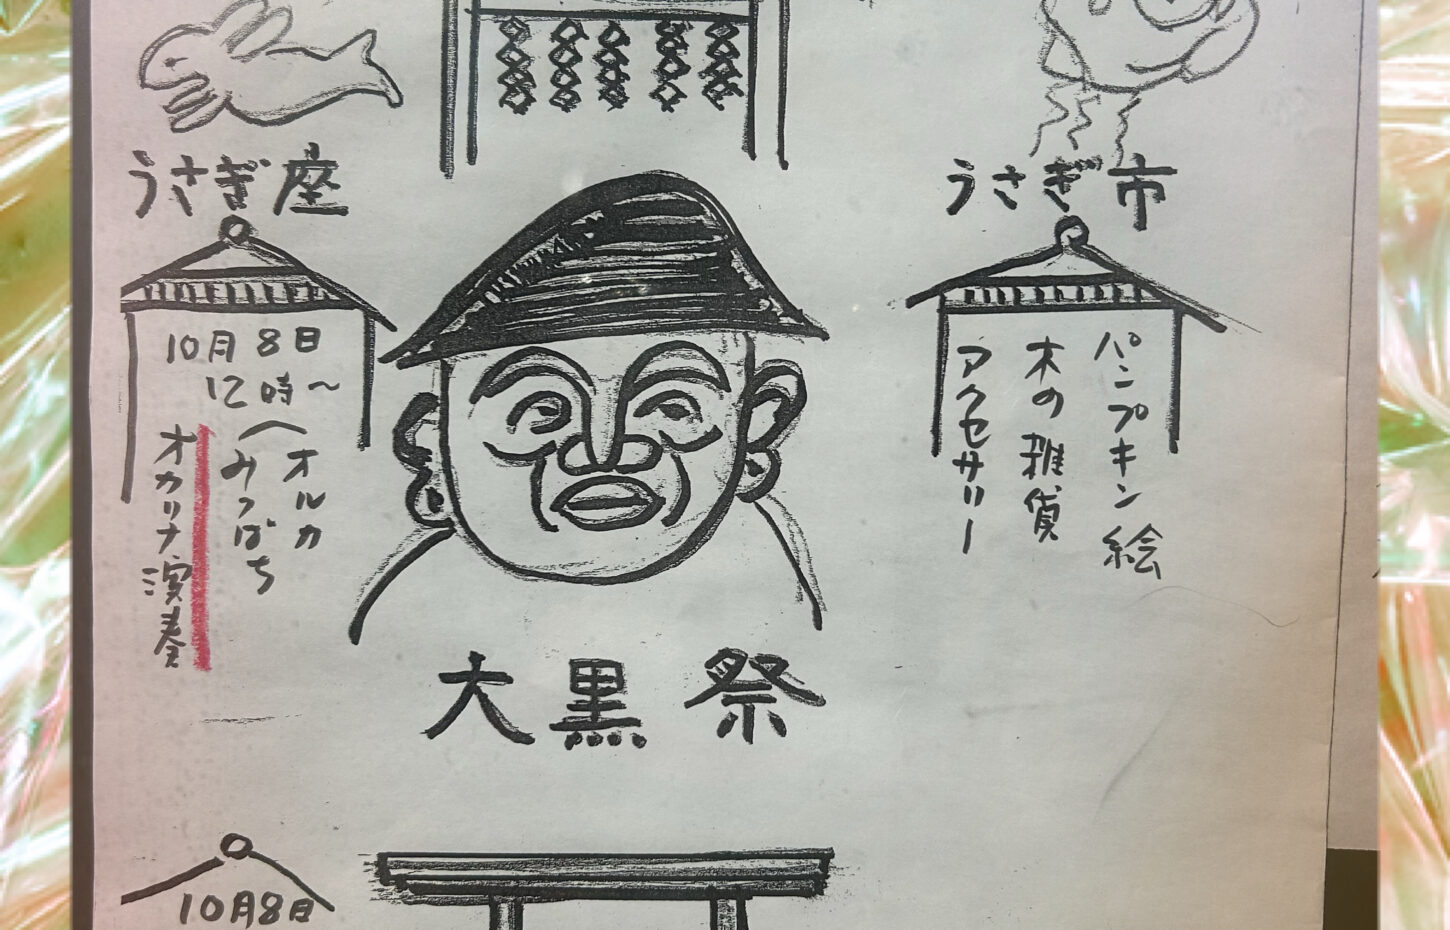 うさぎ座
10月8日
12時〜
オルカ
みつばち
オカリナ演奏
うさぎ市
パンプキン絵
木の雑貨
アクセサリー
大黒祭
10月8日